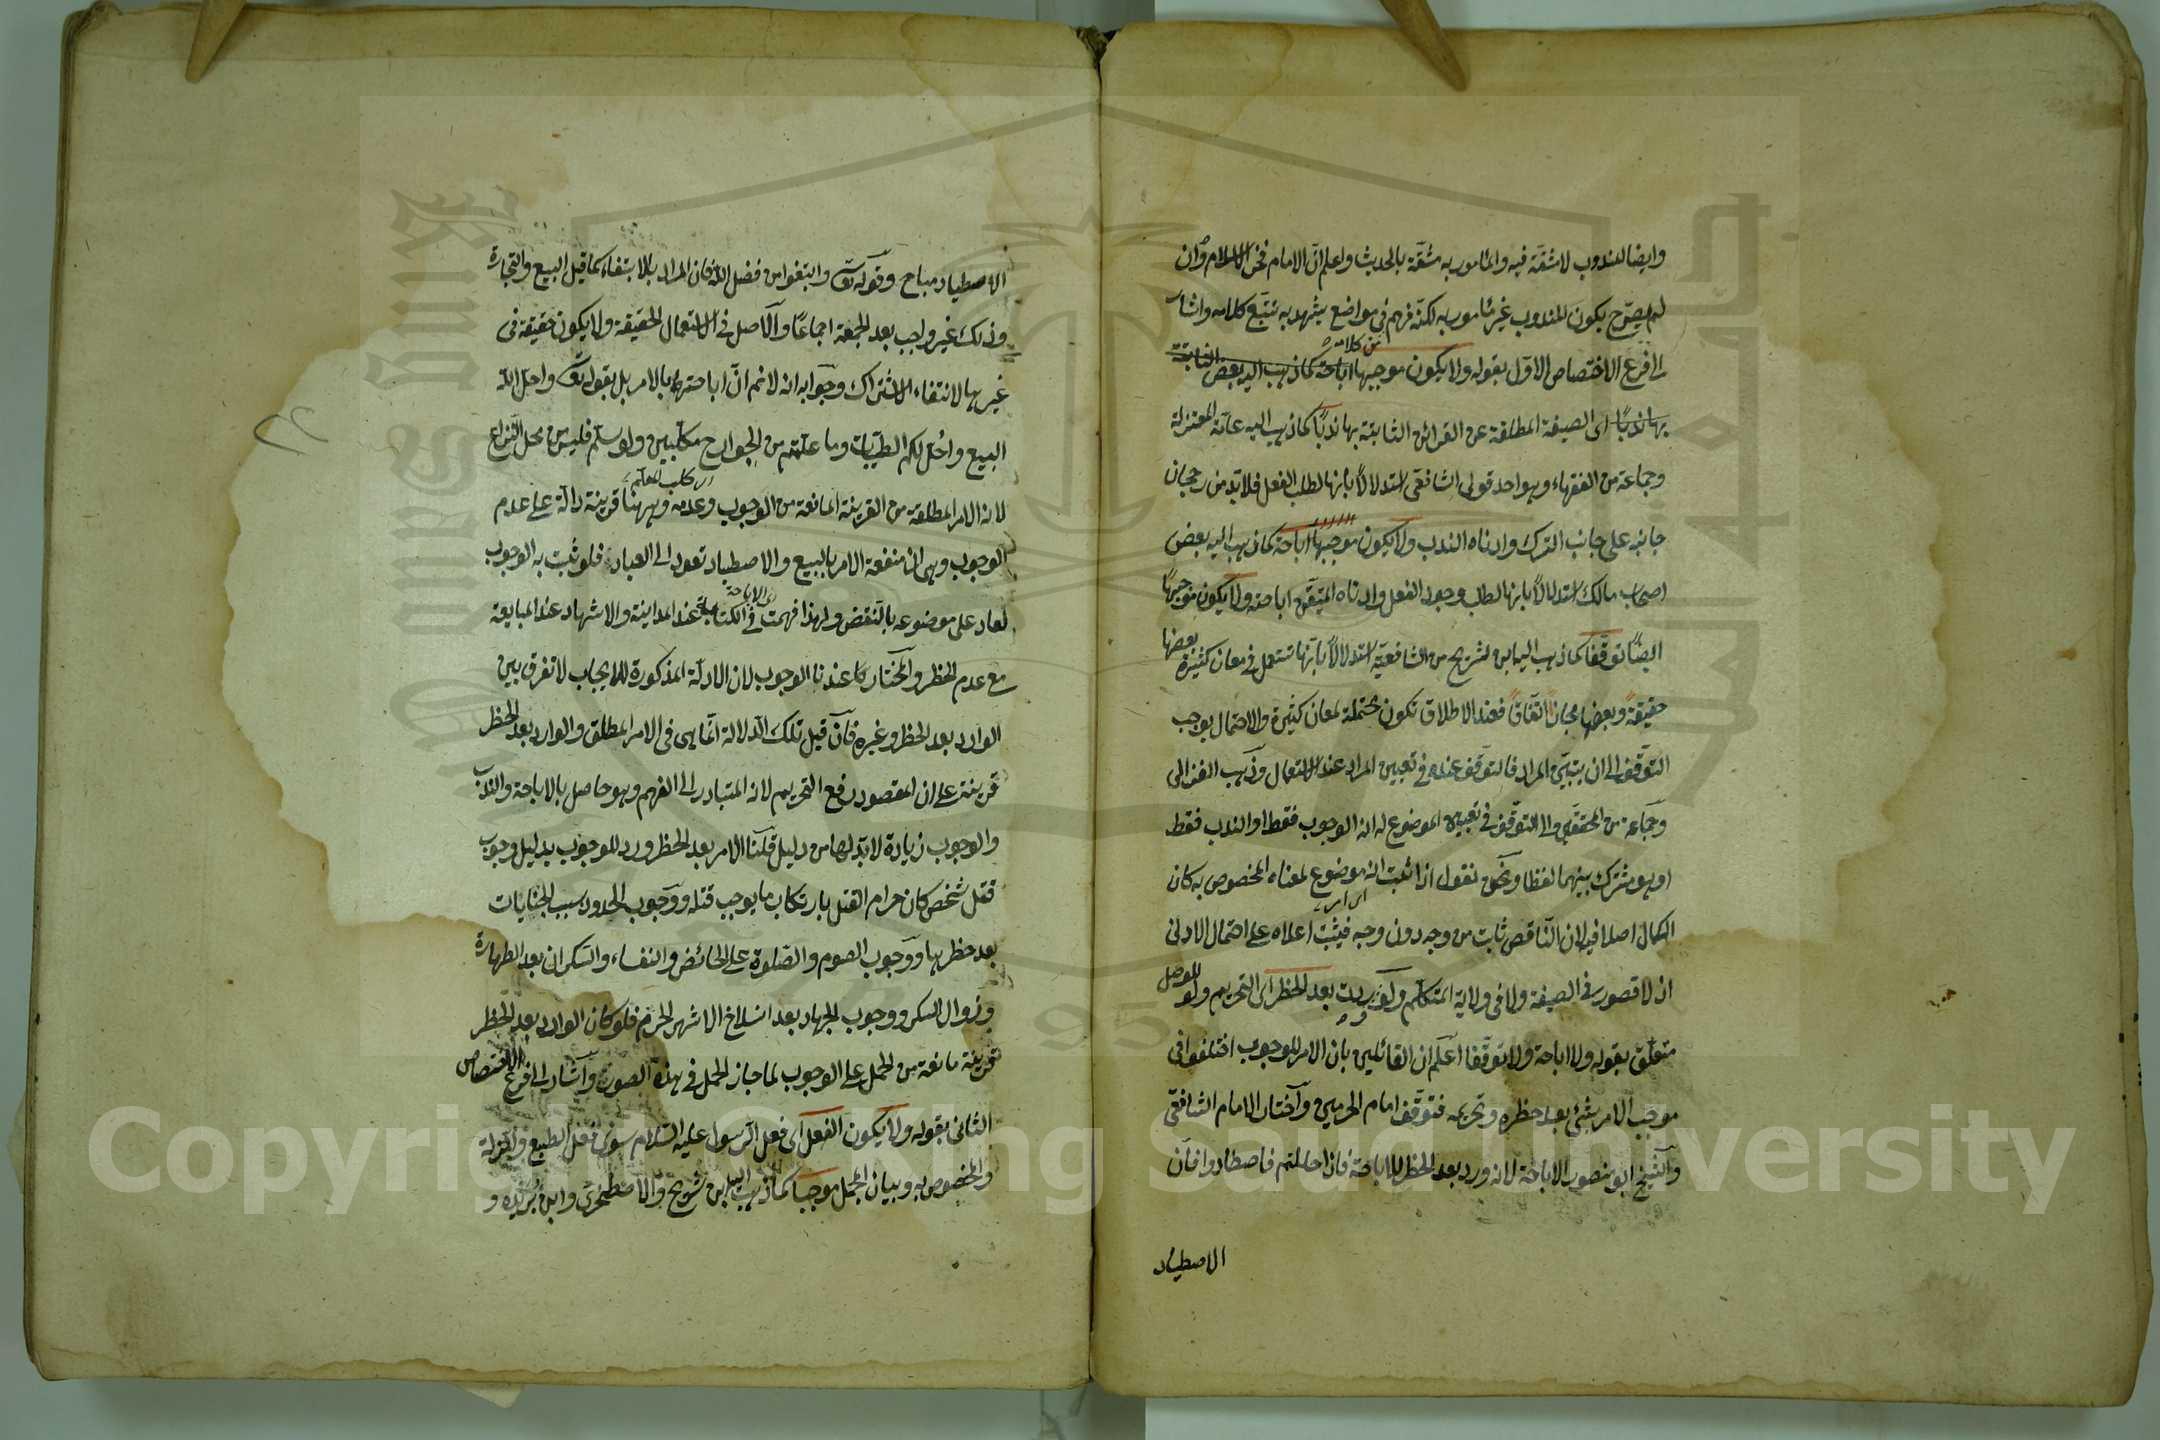 وايضا المندوب لا مشقة فيه والمأمور به مشقة بالحديث واعلم انّ الامام فخر الاسلام وان
لم يصرّح بكون المندوب غير مأمور به لكنّه فهم في مواضع يشهد به تتبّع كلامه واشار
الى فرع الاختصاص الاول بقوله ولا يكون موجبها اباحة كما ذهب اليه بعض
من كلامه
بها ندبًا اى الصيغة المطلقة عن القرائن الثابتة بها ندبًا كما ذهب اليه عامة المعتزلة
وجماعة من الفقهاء وهو احد قولى الشافعى استدلالًا بانها لطلب الفعل فلا بد من رجحان
جانبه على جانب الترك وادناه الندب ولا يكون موجبها اباحة كما ذهب اليه بعض
اصحاب مالك استدلالًا بانها لطلب وجود الفعل وادناه المتيقن اباحته ولا يكون موجبها
ايضًا توقّفا كما ذهب اليه ابن شريح من الشافعيّة استدلالًا بانها تستعمل في معان كثيرة بعضها
حقيقةً وبعضها مجازًا اتفاقًا فعند الاطلاق تكون محتملة لمعان كثيرة والاحتمال يوجب
التوقّف الى ان يتبيّن المراد فالتوقف عنده في تعيين المراد عند الاستعمال وذهب الغزالى
وجماعة من المحققين الى التوقّف في تعيين الموضوع له انه الوجوب فقط او الندب فقط
او هو مشترك بينهما لفظا ونحن نقول اذا ثبت انه موضوع لمعناه المخصوص به كان
الكمال اصلا فيه لان النّاقص ثابت من وجه دون وجه فيثبت اعلاه على احتمال الادنى
اذ لا قصور في الصيغة ولا في ولاية المتكلم ولو وردت بعد الحظر اى التحريم ولو للوصل
متعلّق بقوله ولا اباحة ولا توقّفا اعلم ان القائلين بان الامر للوجوب اختلفوا في
موجب الامر بشئ بعد حظره وتحريمه فتوقّف امام الحرمين واختار الامام الشافعى
والشيخ ابو منصور الاباحة لانه ورد بعد الحظر للاباحة فاذا حللتم فاصطادوا فان
الاصطياد
الاصطياد مباح وقوله تعالى وابتغوا من فضل الله فان المراد بالابتغاء كما قيل البيع والتجارة
وذلك غير واجب بعد الجمعة اجماعًا والاصل في الاستعمال الحقيقة ولا يكون حقيقة في
غيرها لانتفاء الاشتراك وجوابه انه لا نم انّ اباحتها بالامر بل بقوله تعالى واحلّ الله
البيع واحل لكم الطيبات وما علمتم من الجوارح مكلبين ولو سلم فليس من محل النزاع
لانه الامر المطلق من القرينة المانعة من الوجوب وعدمه وههنا قرينة دالة على عدم
الوجوب وهى ان منفعة الامر بالبيع والاصطياد تعود الى العباد فلو ثبت به الوجوب
لعاد على موضوعه بالنقض ولهذا فهمت في الكتابة عند المداينة والاشهاد عند المبايعة
اى الاباحة
مع عدم الحظر والمختار كما عندنا الوجوب لان الادلة المذكورة للايجاب لا تفرق بين
الوارد بعد الحظر وغيره فان قيل تلك الدلالة انّما هى في الامر المطلق والوارد بعد الحظر
قرينته على ان المقصود رفع التحريم لانه المتبادر الى الفهم وهو حاصل بالاباحة والندب
والوجوب زيادة لا بدّ لها من دليل قلنا الامر بعد الحظر ورد للوجوب بدليل وجوب
قتل شخص كان حرام القتل بارتكاب ما يوجب قتله ووجوب الحدود بسبب الجنايات
بعد حظرها ووجوب الصوم والصّلوة على الحائض والنفساء والسكران بعد الطهارة
وزوال السكر ووجوب الجهاد بعد انسلاخ الاشهر الحرم فلو كان الوارد بعد الحظر
قرينة مانعة من الحمل على الوجوب لما جاز الحمل في هذه الصور واشار الى فرع الاختصاص
الثانى بقوله ولا يكون الفعل اى فعل الرسول عليه السّلام سوى فعل الطبع والزلة
والمخصوص به وبيان المجمل موجبا كما ذهب اليه ابن شريح والاصطخرى وابن هريرة و